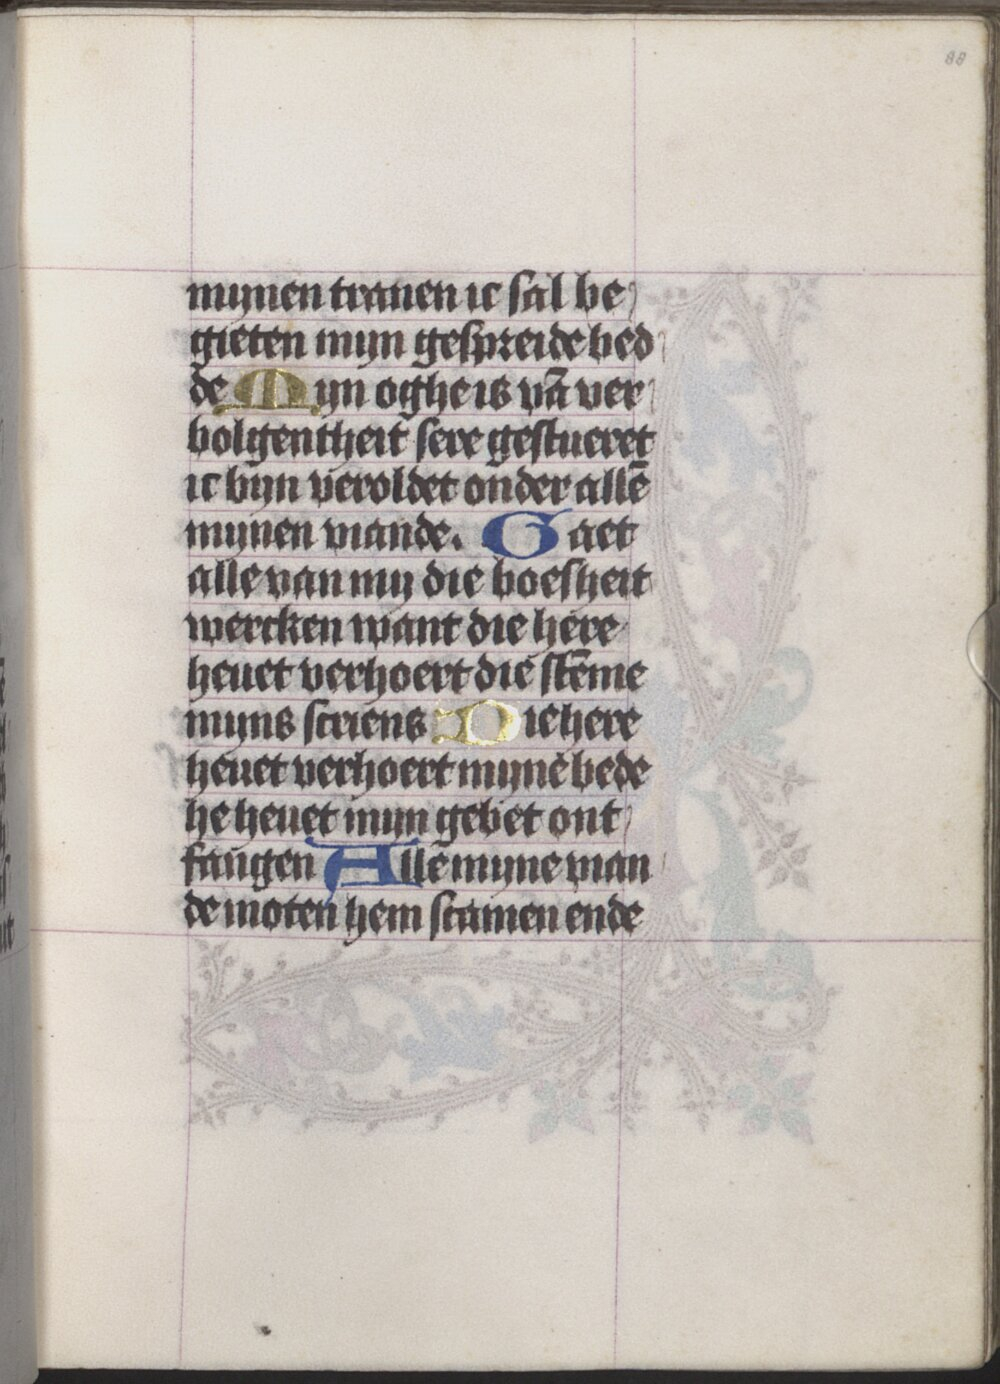 88
mynen tranen ic sal be
gieten mijn gespreide bed
de Mijn oghe is vā ver
bolgentheit sere gestueret
ic bijn veroldet onder allē
mijnen viande. Gaet
alle van mij die boesheit
wercken want die here
heuet verhoert die stēme
mijns scriens Die here
heuet verhoert mijnē bede
he heuet mijn gebet ont
fangen Alle mijne vian
de moten hem scamen ende